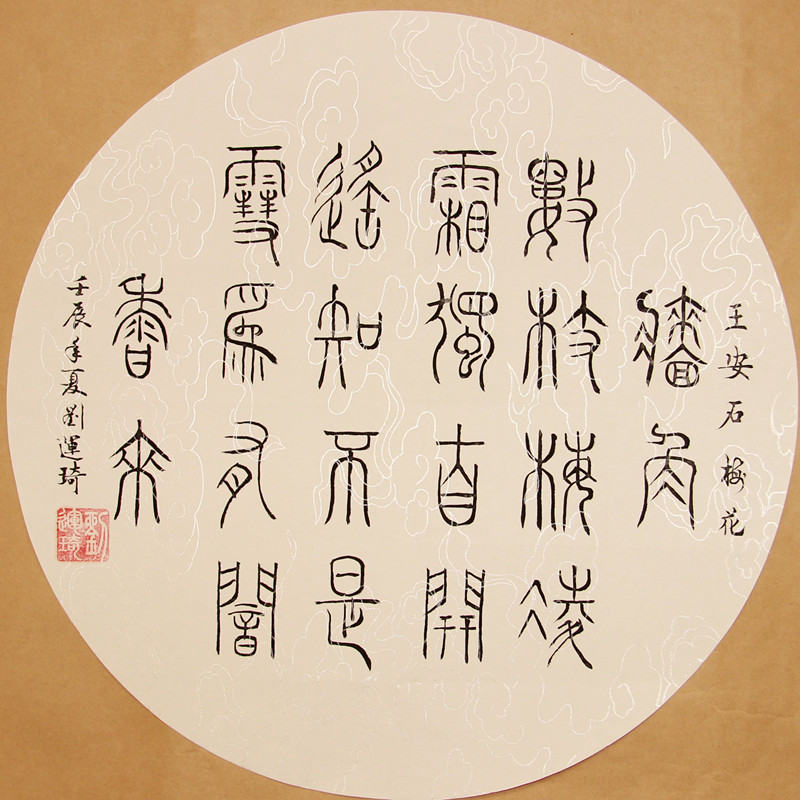 王安石 梅花
牆角
數枝梅凌
霜獨自開
遙知不是
雪爲有闇
香來
壬辰年夏劉運琦
劉運琦